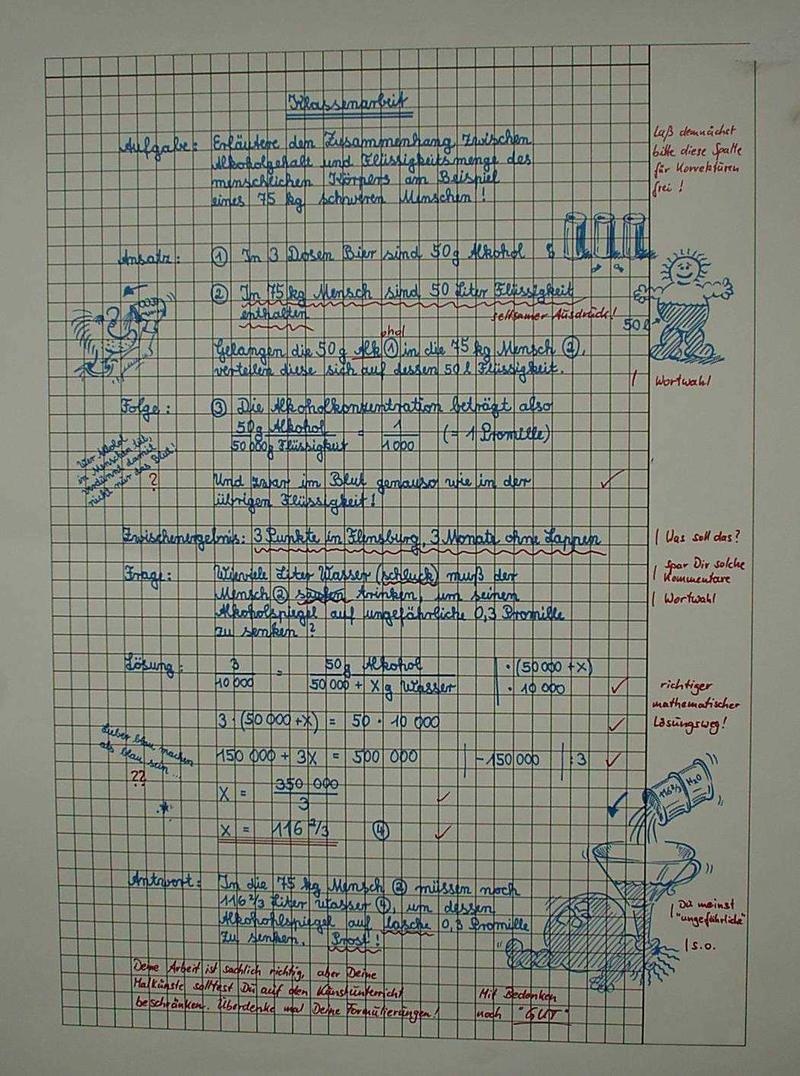 Klassenarbeit
Aufgabe: Erläutere den Zusammenhang zwischen
Alkoholgehalt und Flüssigkeitsmenge des
menschlichen Körpers am Beispiel
eines 75 kg schweren Menschen!
Laß demnächst
bitte diese Spalte
für Korrekturen
frei!
Ansatz: ① In 3 Dosen Bier sind 50g Alkohol
② In 75 kg Mensch sind 50 Liter Flüssigkeit
enthalten
seltsamer Ausdruck!
50 l
ohol
Gelangen die 50 g Alk ① in die 75 kg Mensch ②,
verteilen diese sich auf dessen 50 l Flüssigkeit.
Wortwahl
Folge: ③ Die Alkoholkonzentration beträgt also
50g Alkohol / 50 000g Flüssigkeit = 1 / 1000 (= 1 Promille)
Wer Alkohol
in Menschen
verdünnt damit
nicht nur das Blut!
?
Und zwar im Blut genauso wie in der
übrigen Flüssigkeit!
Zwischenergebnis: 3 Punkte in Flensburg, 3 Monate ohne Lappen
Was soll das?
Frage: Wieviele Liter Wasser (schluck) muß der
Mensch ② saufen trinken, um seinen
Alkoholspiegel auf ungefährliche 0,3 Promille
zu senken?
Spar Dir solche
Kommentare
Wortwahl
Lösung: 3 / 10 000 = 50g Alkohol / 50 000 + X g Wasser | · (50 000 + X)
· 10 000
3 · (50 000 + X) = 50 · 10 000
150 000 + 3X = 500 000 | -150 000 | :3
X = 350 000 / 3
X = 116 2/3 ④
richtiger
mathematischer
Lösungsweg!
Lieber blau machen
als blau sein ...
??
116 2/3 H2O
Antwort: In die 75 kg Mensch ② müssen noch
116 2/3 Liter Wasser ④, um dessen
Alkohohlspiegel auf lasche 0,3 Promille
zu senken. Prost!
Du meinst
"ungefährliche"
s.o.
Deine Arbeit ist sachlich richtig, aber Deine
Malkünste solltest Du auf den Kunstunterricht
beschränken. Überdenke mal Deine Formulierungen!
Mit Bedenken
noch "GUT"